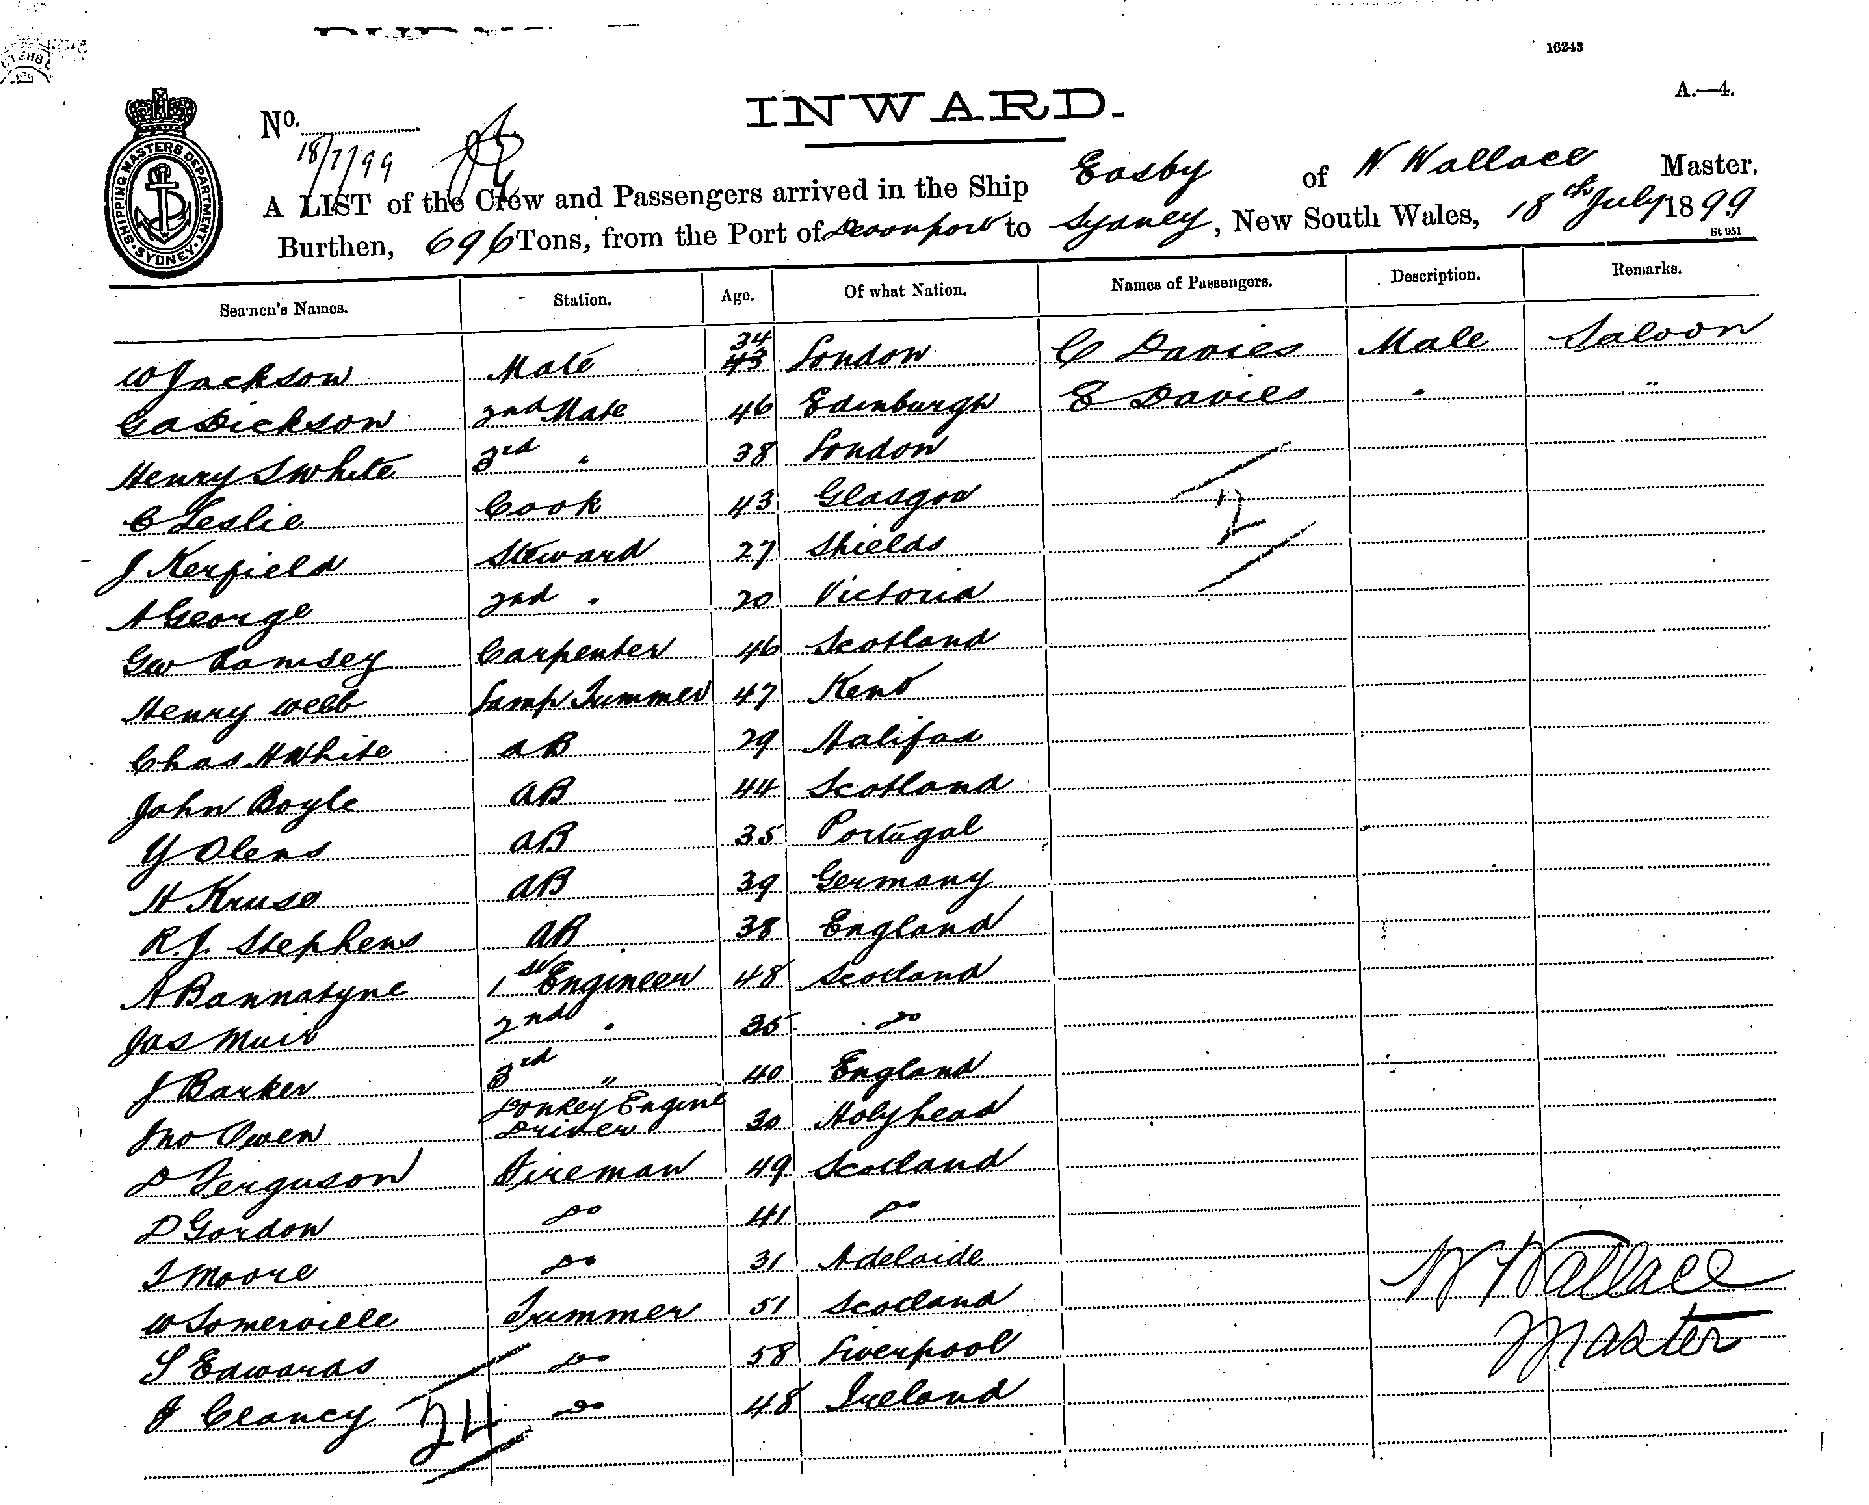 16243
A.—4.
INWARD.
No.
18/7/99
SHIPPING MASTERS DEPARTMENT. SYDNEY
A LIST of the Crew and Passengers arrived in the Ship Easby of W Wallace Master,
Burthen, 696 Tons, from the Port of Devonport to Sydney, New South Wales, 18th July 1899
St 951
Seamen's Names. Station. Age. Of what Nation. Names of Passengers. Description. Remarks.
W Jackson Mate 43 34 London C Davies Male Saloon
G A Dickson 2nd Mate 46 Edinburgh E Davies " "
Henry S White 3rd " 38 London
C Leslie Cook 43 Glasgow
2
J Kerfield Steward 27 Shields
A George 2nd " 20 Victoria
GW Ramsey Carpenter 46 Scotland
Henry Webb Lamp Trimmer 47 Kent
Chas H White AB 29 Halifax
John Boyle AB 44 Scotland
Y Olens AB 35 Portugal
H Kruse AB 39 Germany
R.J. Stephens AB 38 England
A Bannatyne 1st Engineer 48 Scotland
Jas Muir 2nd " 35 Do
J Barker 3rd " 40 England
Jno Owen Donkey Engine Driver 30 Holyhead
D Ferguson Fireman 49 Scotland
D Gordon Do 41 Do
T Moore Do 31 Adelaide
W Somerville Trimmer 51 Scotland
W Wallace
Master
S Edwards Do 58 Liverpool
J Clancy Do 48 Ireland
24